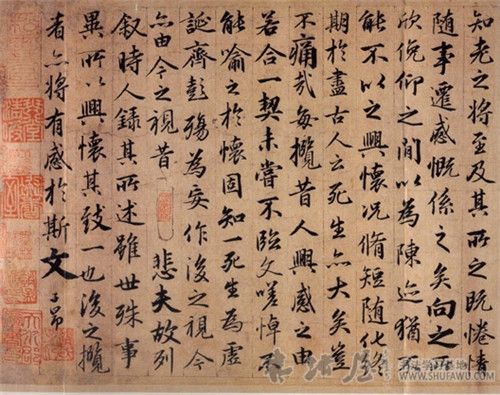 知老之將至及其所之既惓情
隨事遷感慨係之矣向之所
欣俛仰之間以為陳迹猶不
能不以之興懷況脩短隨化終
期於盡古人云死生亦大矣豈
不痛哉每攬昔人興感之由
若合一契未嘗不臨文嗟悼不
能喻之於懷固知一死生為虛
誕齊彭殤為妄作後之視今
亦由今之視昔 悲夫故列
敘時人錄其所述雖世殊事
異所以興懷其致一也後之攬
者亦將有感於斯文 子昂
书法屋
书法学习基地
WWW.SHUFAWU.COM